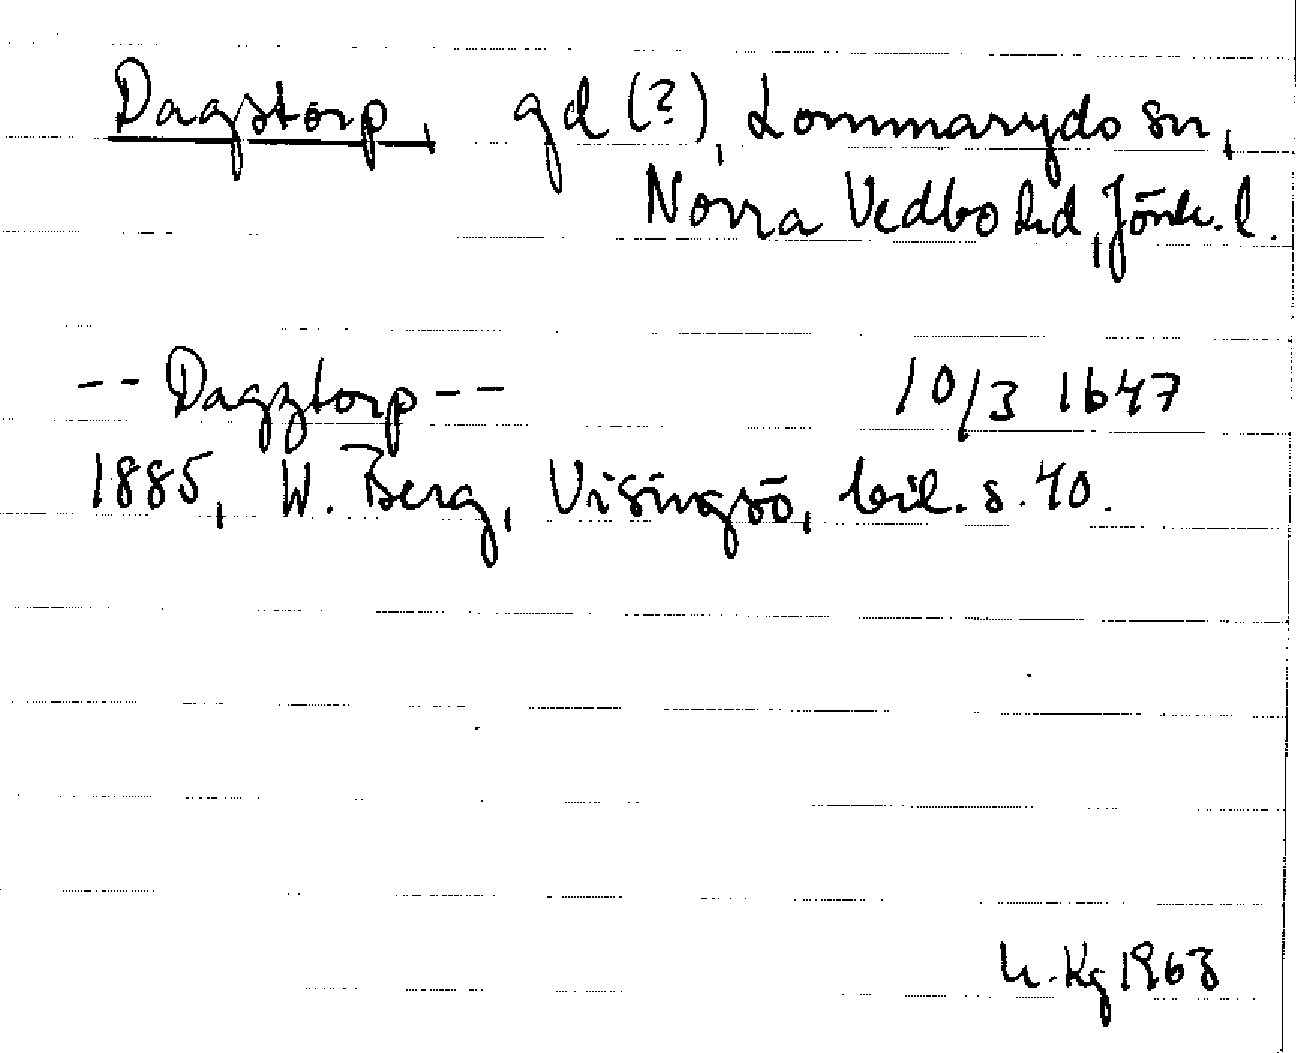 Dagstorp, gd (?), Lommaryds sn,
Norra Vedbo hd, Jönk. l.
-- Dagztorp -- 10/3 1647
1885, W. Berg, Visingsö, bil. s. 40.
Kg 1963